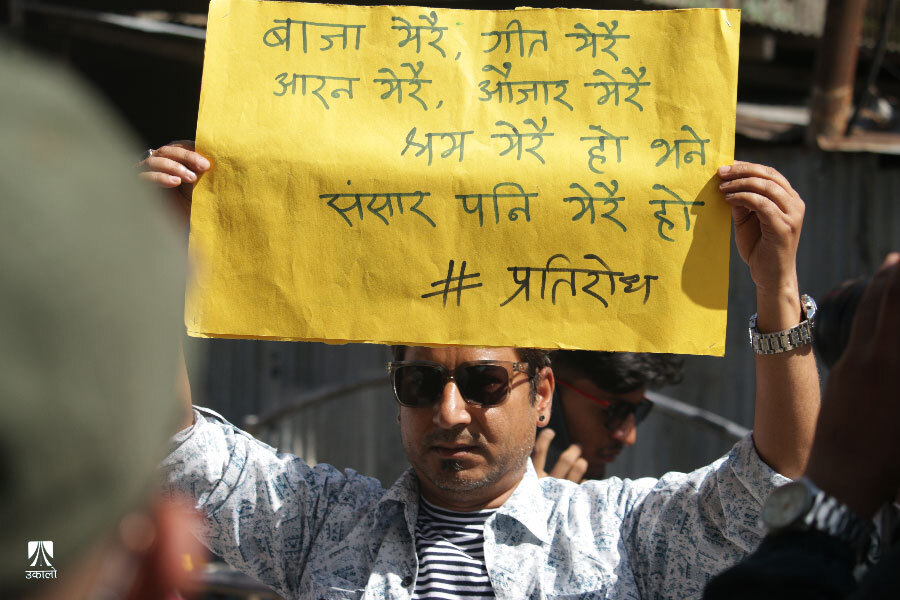 बाजा मेरै, गीत मेरै
आरन मेरै, औजार मेरै
श्रम मेरै हो भने
संसार पनि मेरै हो
# प्रतिरोध
उकालो